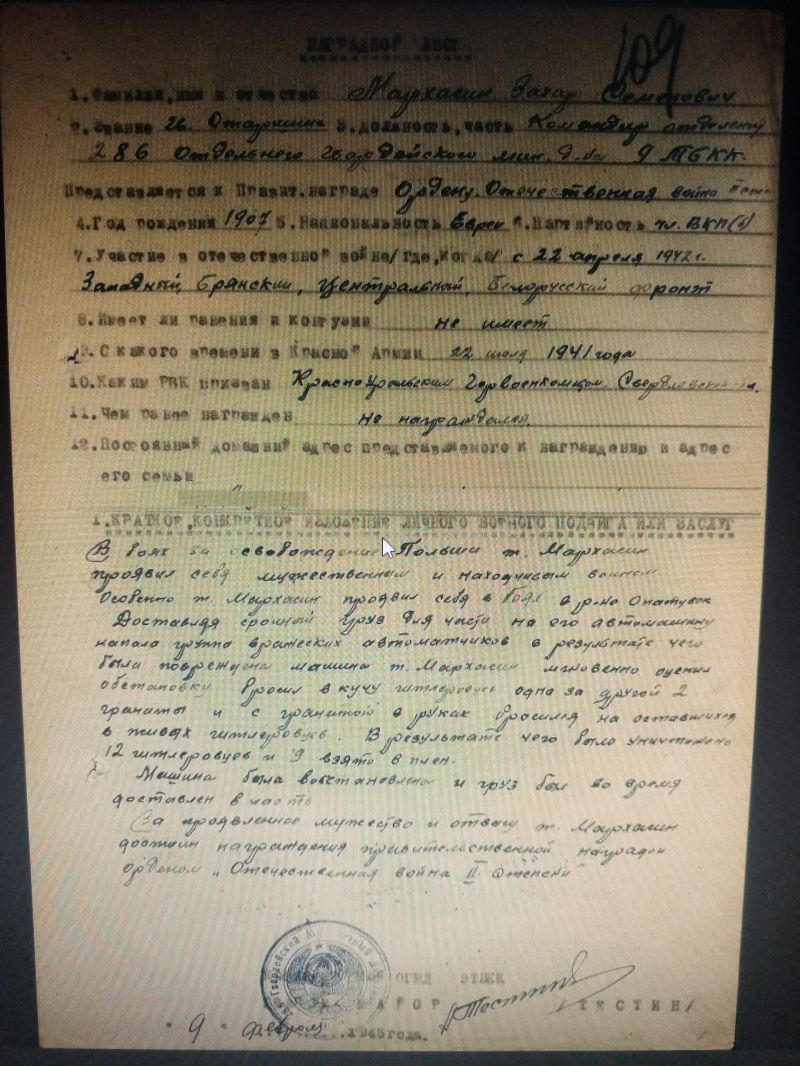 НАГРАДНОЙ ЛИСТ
109
1. Фамилия, имя и отчество Мархасин Захар Семенович
2. Звание гв. Старшина 3. Должность, часть Командир отделения
286 Отдельного гвардейского мин. д-на 9 ТБКК.
Представляется к Правит. награде Ордену Отечественная война
4. Год рождения 1907 5. Национальность Еврей 6. Партийность чл. ВКП(б)
7. Участие в отечественной войне /где, когда/ с 22 апреля 1942 г.
Западный, Брянский, Центральный, Белорусский фронт
8. Имеет ли ранения и контузии не имеет
9. С какого времени в Красной Армии 22 июля 1941 года
10. Каким РВК призван Красноуральским Горвоенкоматом. Свердловской
11. Чем ранее награжден не награждался.
12. Постоянный домашний адрес представляемого к награждению и адрес
его семьи
1. КРАТКОЕ, КОНКРЕТНОЕ ИЗЛОЖЕНИЕ ЛИЧНОГО БОЕВОГО ПОДВИГА ИЛИ ЗАСЛУГ
В боях за освобождение Польши т. Мархасин
проявил себя мужественным и находчивым воином.
Особенно т. Мархасин проявил себя в боях в р-не Опатувок
Доставляя срочный груз для части на его автомашину
напала группа вражеских автоматчиков в результате чего
была повреждена машина т. Мархасин мгновенно оценил
обстановку бросил в кучу гитлеровцев одна за другой 2
гранаты и с гранатой в руках бросился на оставшихся
в живых гитлеровцев. В результате чего было уничтожено
12 гитлеровцев и 9 взято в плен.
Машина была восстановлена и груз был во время
доставлен в часть
За проявленное мужество и отвагу т. Мархасин
достоин награждения правительственной наградой
орденом „Отечественная война II степени"
ОГМД 9ТБКК
МАЙОР /ТЕСТИН/
"9" февраля 1945 года.